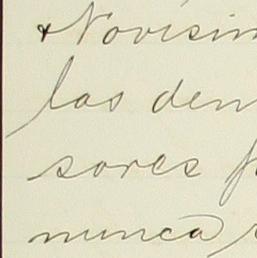 & Novisim
las dem
sores f
nunca